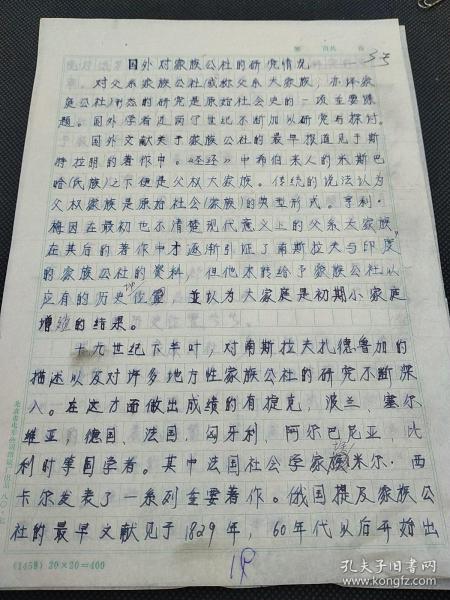 国外对家族公社的研究情况
对父系家族公社(或称父系大家族,亦称家
庭公社)形态的研究是原始社会史的一项主要课
题。国外学者近两个世纪不断加以研究与探讨。
国外文献关于家族公社的最早报道见于斯
特拉朋的著作中。《圣经》中希伯来人的米斯巴
哈(氏族)之下便是父权大家族。传统的说法认为
父权家族是原始社会(家族)的典型形式。亨利·
梅因在最初也不清楚现代意义上的父系大家族,
在其后的著作中才逐渐引证了南斯拉夫与印度
的家族公社的资料,但他未能给予家族公社以
应有的历史位置,並认为大家庭是初期小家庭
增殖的结果。
十九世纪下半叶,对南斯拉夫扎德鲁加的
描述以及对许多地方性家族公社的研究不断深
入。在这方面做出成绩的有捷克,波兰、塞尔
维亚,德国、法国、匈牙利,阿尔巴尼亚,比
利时等国学者。其中法国社会学家米尔·西
卡尔发表了一系列主要著作。俄国提及家族公
社的最早文献见于1829年,60年代以后开始出
(1458) 20×20=400
孔夫子旧书网